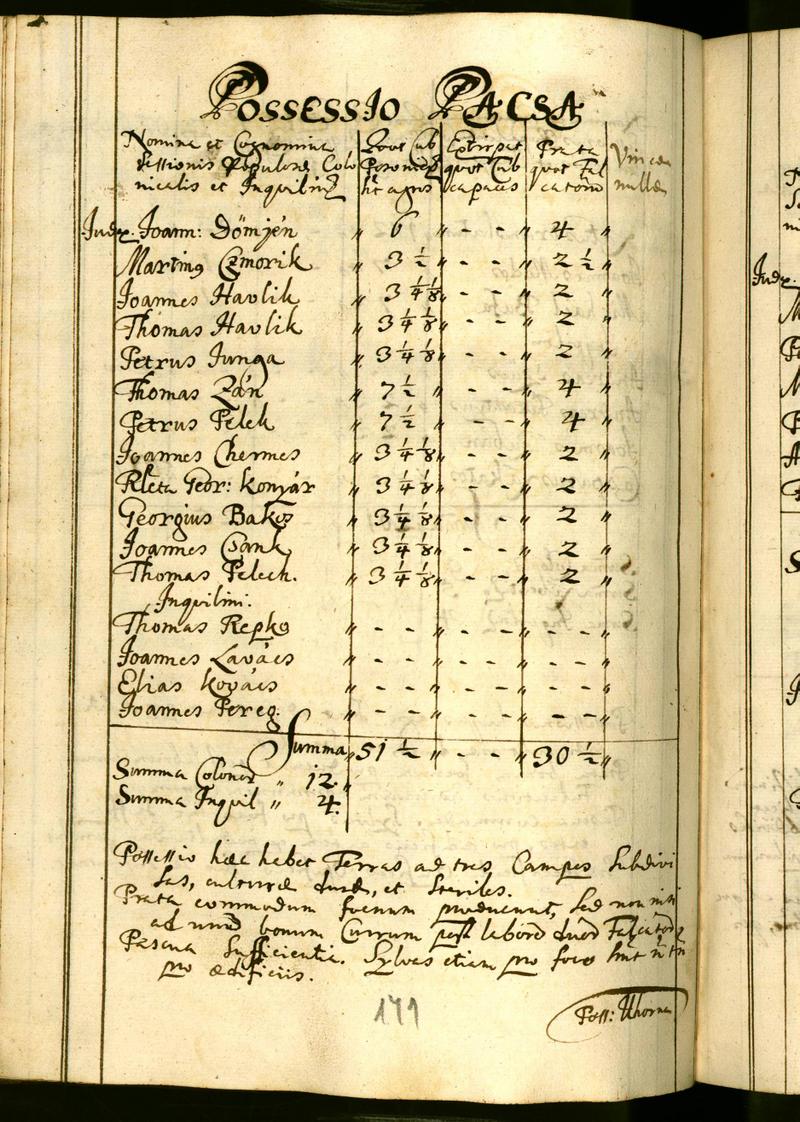 Possessio Pacsa
Nomina et Cognomina Quot Cub Extirpat Prata Vineae
Sessionis Colo quot Cub quot Fal nullae
nicalis et Inquilinor ht agros capaces catorum
Judex. Joann: Dömjén " 6 " - - " 4 "
Martinus Czmorik " 3 1/2 " - - " 2 1/2 "
Joannes Havlik " 3 1/4 1/8 " - - " 2 "
Thomas Havlik " 3 1/4 1/8 " - - " 2 "
Petrus Junga " 3 1/4 1/8 " - - " 2 "
Thomas Zán " 7 1/2 " - - " 4 "
Petrus Pelek " 7 1/2 " - - " 4 "
Joannes Chermes " 3 1/4 1/8 " - - " 2 "
Rleta Geor: Konyár " 3 1/4 1/8 " - - " 2 "
Georgius Bakos " 3 1/4 1/8 " - - " 2 "
Joannes Csank " 3 1/4 1/8 " - - " 2 "
Thomas Pelech. " 3 1/4 1/8 " - - " 2 "
Inquilini.
Thomas Repko " - - " - - " - - "
Joannes Lavács " - - " - - " - - "
Elias Kovács " - - " - - " - - "
Joannes Pereg. " - - " - - " - - "
Summa " 51 1/2 " - - " 30 1/2 "
Summa Colonor " 12. "
Summa Inquil " 4.
Possessio haec habet Terras ad tres Campos Subdivi
sas, culturae durae, et Steriles.
Prata commodum foenum producunt, sed non nisi
ad unum bonum Currum post laborem duor Falcator
Pascua Sufficientia. Sylvas etiam pro foco hnt
pro aedificiis.
171
Poss: Uhorna